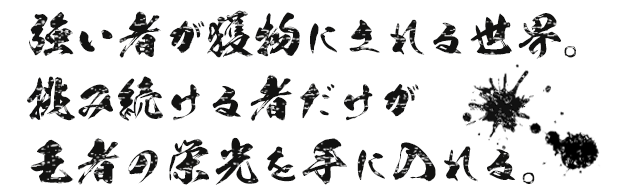 強い者が獲物にまれる世界。
挑み続ける者だけが
王者の栄光を手に入れる。